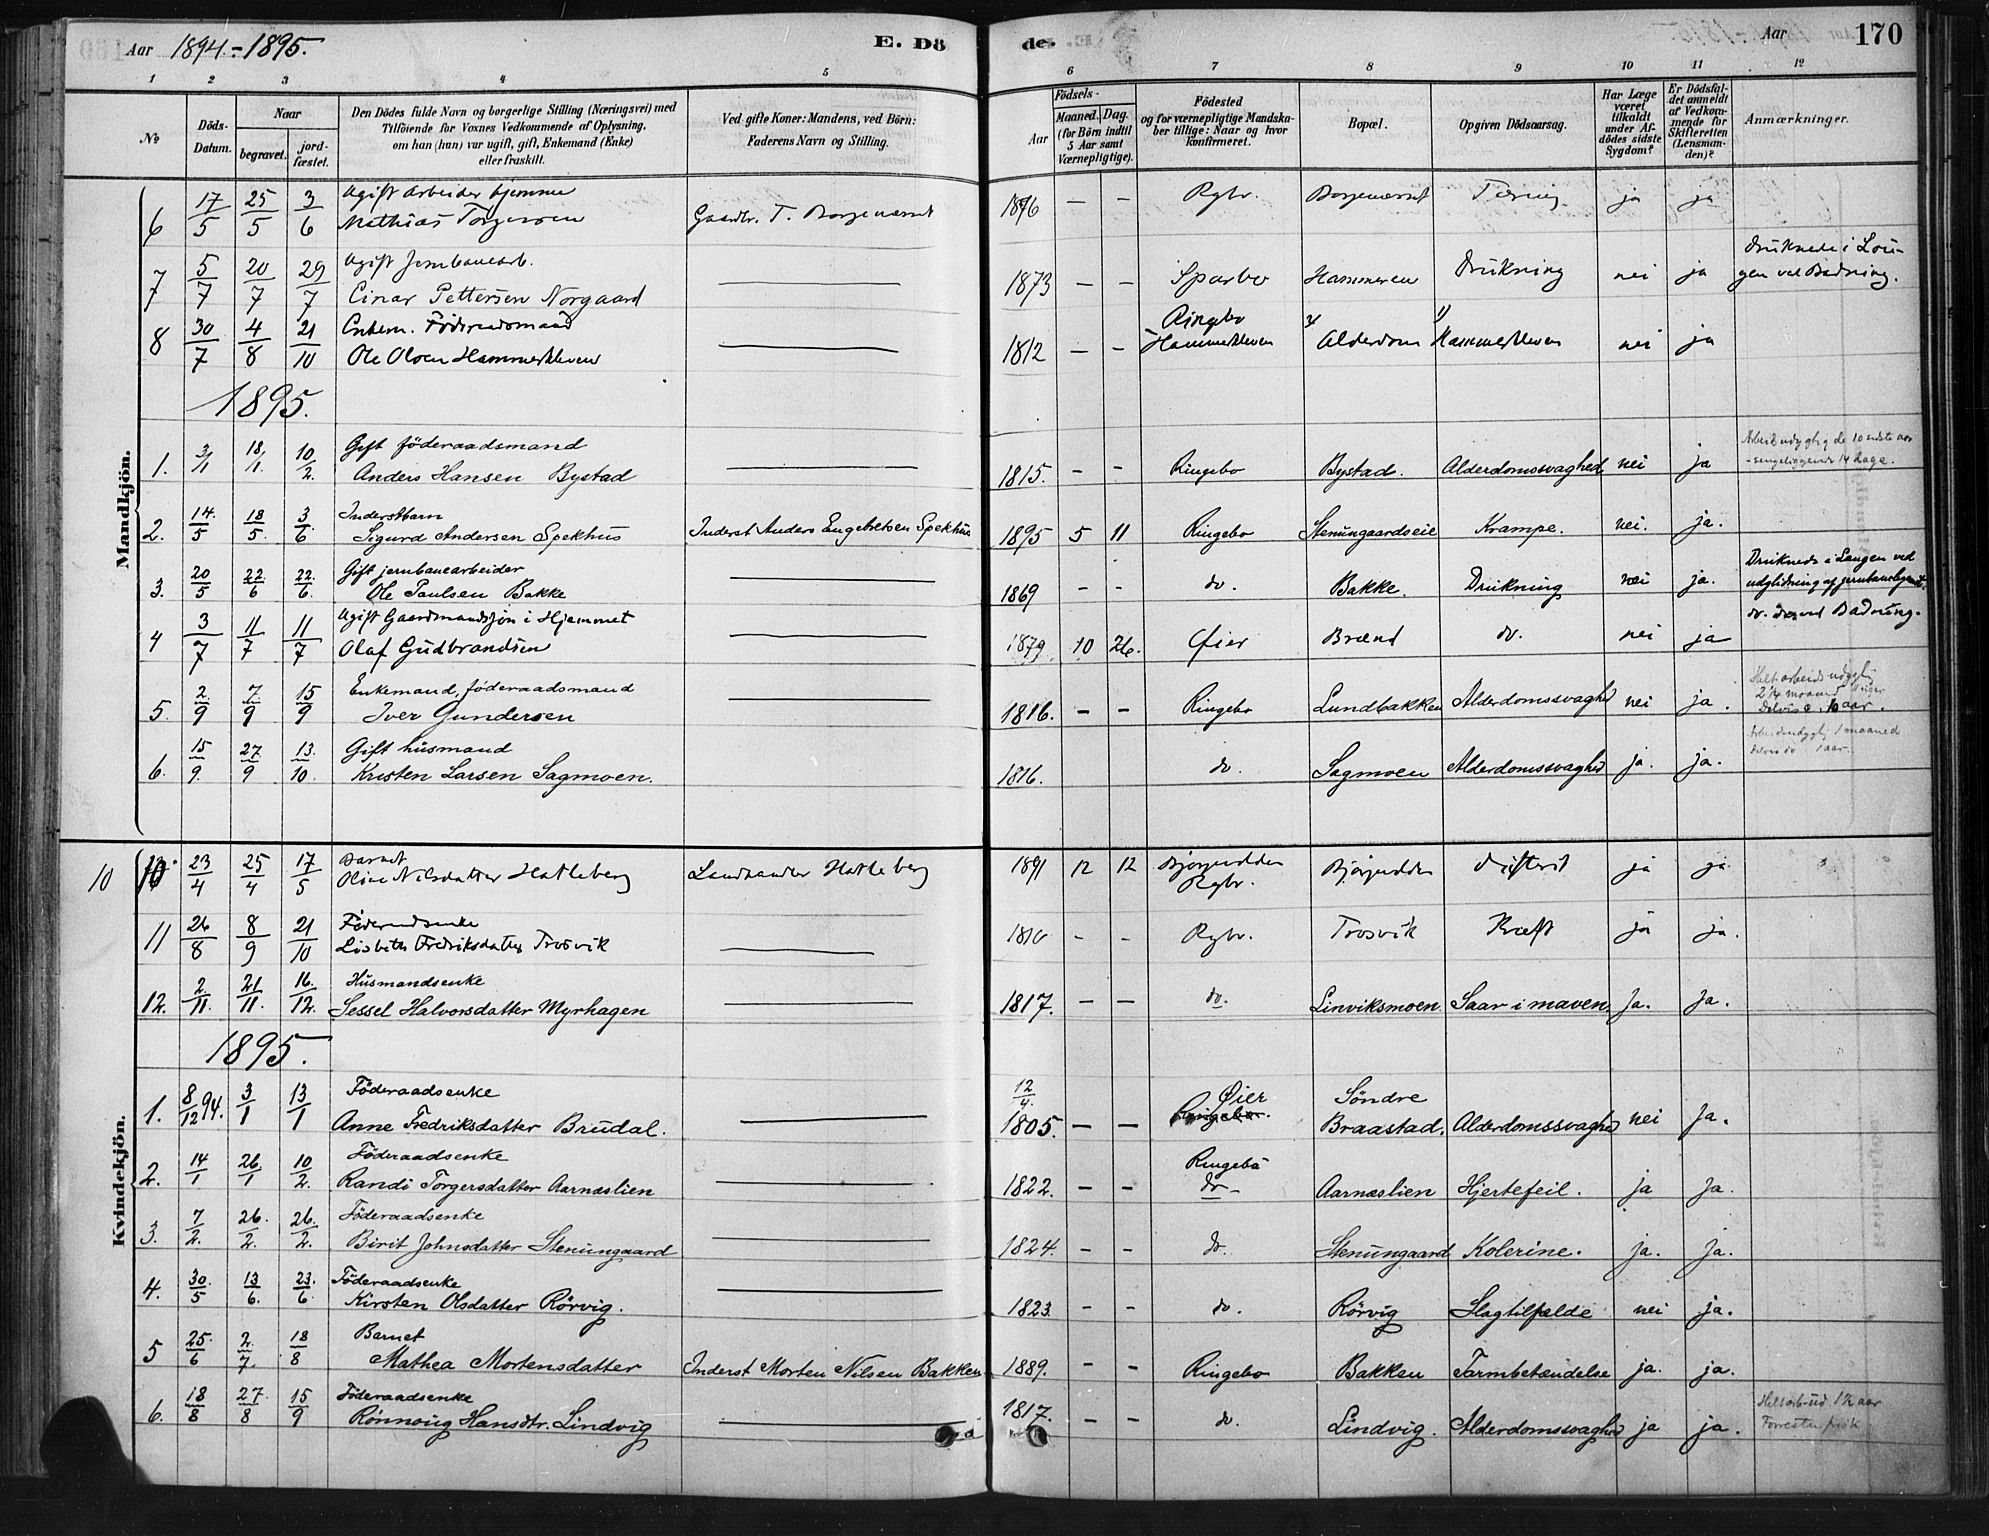 Aar 1894-1895.
E. Dö
de.
Aar
170
1 2 3 4 5 6 7 8 9 10 11 12
No
Döds-Datum.
Naar
begravet.
jord-fæstet.
Den Dödes fulde Navn og borgerlige Stilling (Næringsvei) med
Tilföiende for Voxnes Vedkommende af Oplysning,
om han (hun) var ugift, gift, Enkemand (Enke)
eller fraskilt.
Ved gifte Koner: Mandens, ved Börn:
Faderens Navn og Stilling.
Födsels-
Aar
Maaned. Dag.
(for Börn indtil
5 Aar samt
Værnepligtige).
Födested
og for værnepligtige Mandska-
ber tillige: Naar og hvor
konfirmeret.
Bopæl.
Opgiven Dödsaarsag.
Har Læge
været
tilkaldt
under Af-
dödes sidste
Sygdom?
Er Dödsfal-
det anmeldt
af Vedkom-
mende for
Skifteretten
(Lensman-
den)?
Anmærkninger.
Mandkjön.
6 17/5 25/5 3/6 Ugift Arbeider hjemme
Mathias Torgersen Gaardbr. T. 1876 — — Rgbr. Tæring ja ja
7 5/7 20/7 29/7 Ugift Jernbanearb.
Einar Pettersen Norgaard 1873 — — Sparbo Hammeren Drukning nei ja druknede i Lou-
gen ved Badning.
8 30/7 4/8 21/10 Enkem. Föderaadsmand
Ole Olsen Hammerkleven 1812 — — Ringebo
Hammerkleven Alderdom Hammerkleven nei ja
1895.
1. 3/1 18/1. 10/2. Gift föderaadsmand
Anders Hansen Bystad 1815. - - Ringebo Bystad. Alderdomssvaghed nei ja Arbeidsudygtig de 10 sidste aar
- sengeliggende 14 dage.
2. 14./5 18/5. 3/6. Inderstbarn
Sigurd Andersen Spekhus Inderst Anders Engebretsen Spekhus 1895 5 11 Ringebo Stenungaardseie Krampe. nei. ja.
3. 20/5 22./6 22./6. Gift jernbanearbeider
Ole Paulsen Bakke 1869 - - do. Bakke. Drukning nei ja. Druknede i Laugen ved
udglidning af
4 3/7 11/7 11/7 Ugift Gaardmandssön i Hjemmet
Olaf Gudbrandsen 1879. 10 26. Öier Brænd do. nei ja do. ved Badning.
5. 2./9 7./9 15/9 Enkemand, föderaadsmand
Iver Gundersen 1816. - - Ringebo Lundbakken Alderdomssvaghed nei ja. Helt arbeidsudygtig
2 1/4 maaned
Delvis aar.
6. 15/9. 27/9 13./10. Gift husmand
Kristen Larsen Sagmoen. 1816. do. Sagmoen Alderdomssvaghed ja. ja. Arbeidsudygtig 1 maaned
do 1 aar.
Kvindekjön.
10 10 23/4 25/4 17/5 Barnet
Oline Nilsdatter Hatleberg Landhandler Hatleberg 1891 12 12
Rgbr. Difterit ja ja
11 26/8 8/9 21/10 Föderaadsenke
Lisbeth Fredriksdatter Trosvik 1810 - - Rgbr. Trosvik Kræft ja ja.
12. 2./11. 21/11. 16./12. Husmandsenke
Sessel Halvorsdatter Myrhagen 1817. — — do. Linviksmoen. Saar i maven. Ja. Ja.
1895.
1. 8/12 94. 3/1 13/1 Föderaadsenke
Anne Fredriksdatter Brudal. 12/4. 1805. — — Øier
Ringebo. Söndre
Braastad. Alderdomssvaghed nei Ja.
2. 14/1 26./1 10/2. Föderaadsenke
Randi Torgersdatter Aarnæslien 1822. - - Ringebu
do - Aarnæslien Hjertefeil. ja Ja.
3. 7/2. 26./2. 26./2. Föderaadsenke
Birit Johnsdatter Stenungaard 1824. - - do. Stenungaard Kolerine. ja. Ja.
4. 30./5 13/6. 23./6. Föderaadsenke
Kirsten Olsdatter Rörvig. 1823. - - do. Rörvig Slagtilfælde nei ja.
5 25./6 2./7. 18/8 Barnet
Mathea Mortensdatter Inderst Morten Nilsen Bakken 1889. - - Ringebo Bakken Tarmbetændelse ja. ja.
6. 18/8 27./8 15/9 Föderaadsenke
Rönnoug Hansdtr. Lindvig 1817. - - do. Lindvig. Alderdomssvaghed ja ja. 1/2 aar